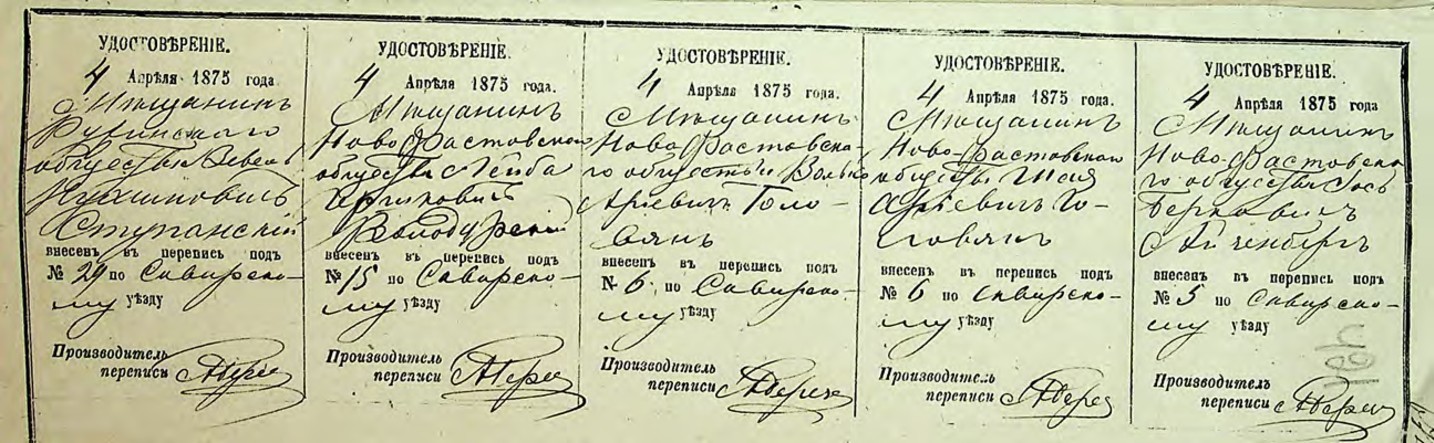 УДОСТОВѢРЕНІЕ.
4 Апрѣля 1875 года.
Мѣщанинъ
Ружинскаго
общества Вевель
Нухимовичъ
Ступанскій
внесенъ въ перепись подъ
№ 29 по Сквирско-
му уѣзду
Производитель
переписи
УДОСТОВѢРЕНІЕ.
4 Апрѣля 1875 года.
Мѣщанинъ
Ново Фастовскаго
общества Лейба
Ершковичъ
Володарскій
внесенъ въ перепись подъ
№ 15 по Сквирско-
му уѣзду
Производитель
переписи
УДОСТОВѢРЕНІЕ.
4 Апрѣля 1875 года.
Мѣщанинъ
Ново Фастовска-
го общества Волько
Аріевичъ Голо-
вянъ
внесенъ въ перепись подъ
№ 6 по Сквирско-
му уѣзду
Производитель
переписи
УДОСТОВѢРЕНІЕ.
4 Апрѣля 1875 года.
Мѣщанинъ
Ново-Фастовскаго
общества Шая
Аріевичъ Го-
ловянъ
внесенъ въ перепись подъ
№ 6 по Сквирско-
му уѣзду
Производитель
переписи
УДОСТОВѢРЕНІЕ.
4 Апрѣля 1875 года
Мѣщанинъ
Ново-Фастовска
го общества Іось
Берковичъ
внесенъ въ перепись подъ
№ 5 по Сквирско-
му уѣзду
Производитель
переписи